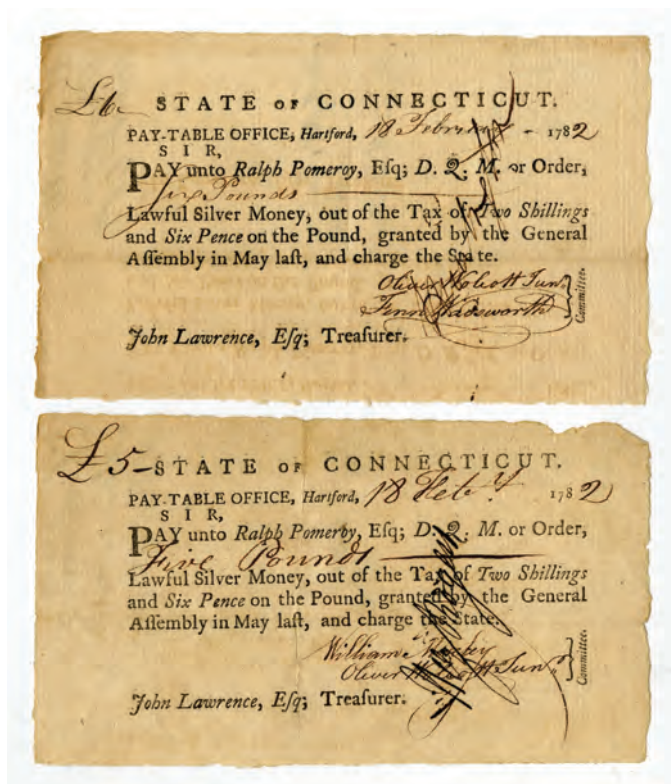 £6- STATE OF CONNECTICUT.
PAY-TABLE OFFICE, Hartford, 18 February - 1782
SIR,
PAY unto Ralph Pomeroy, Eſq; D. Q. M. or Order,
Six Pounds
Lawful Silver Money, out of the Tax of Two Shillings
and Six Pence on the Pound, granted by the General
Aſſembly in May laſt, and charge the State.
Oliver Wolcott Junr.
Fenn Wadsworth
Committee.
John Lawrence, Eſq; Treaſurer.
£5- STATE OF CONNECTICUT.
PAY-TABLE OFFICE, Hartford, 18 Feb.y 1782
SIR,
PAY unto Ralph Pomeroy, Eſq; D. Q. M. or Order,
Five Pounds
Lawful Silver Money, out of the Tax of Two Shillings
and Six Pence on the Pound, granted by the General
Aſſembly in May laſt, and charge the State.
William Moseley
Oliver Wolcott Junr.
Committee.
John Lawrence, Eſq; Treaſurer.